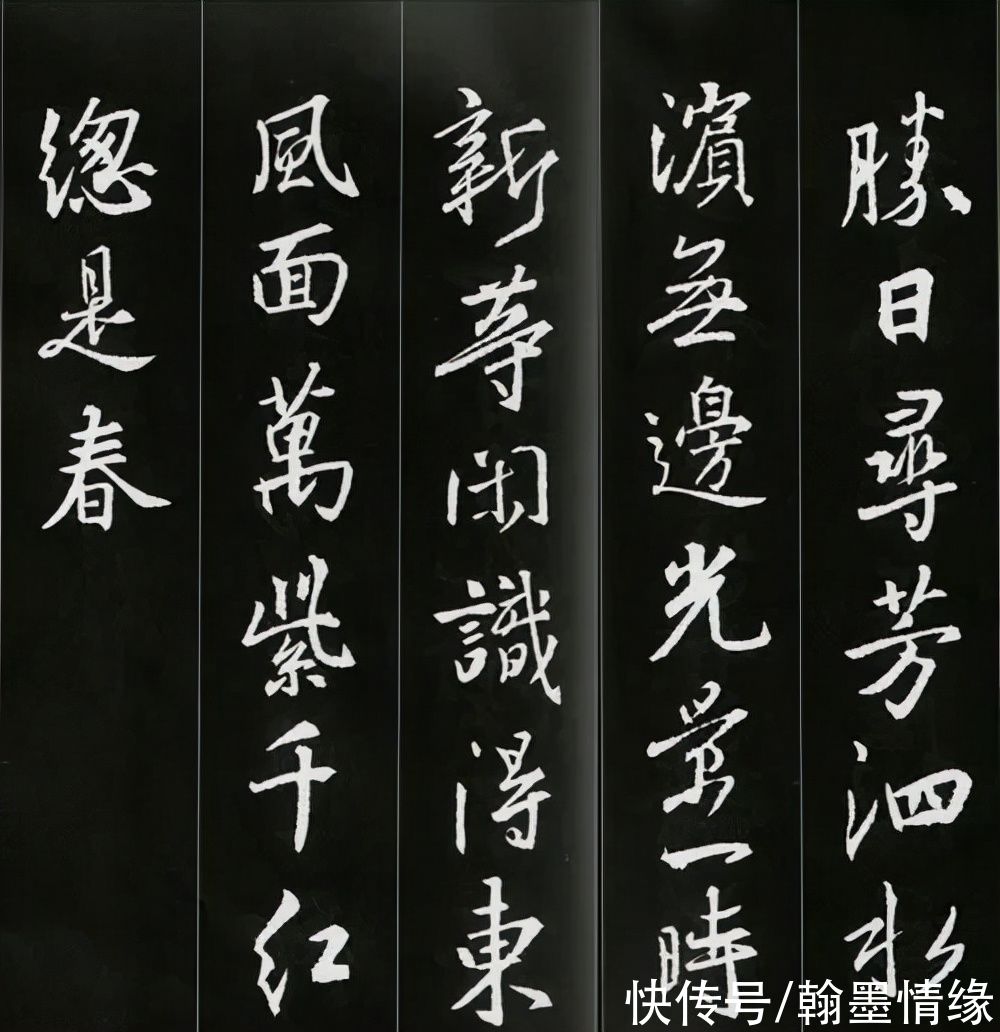 勝日尋芳泗水
濵無邊光景一時
新等閑識得東
風面萬紫千紅
總是春
快传号/翰墨情缘